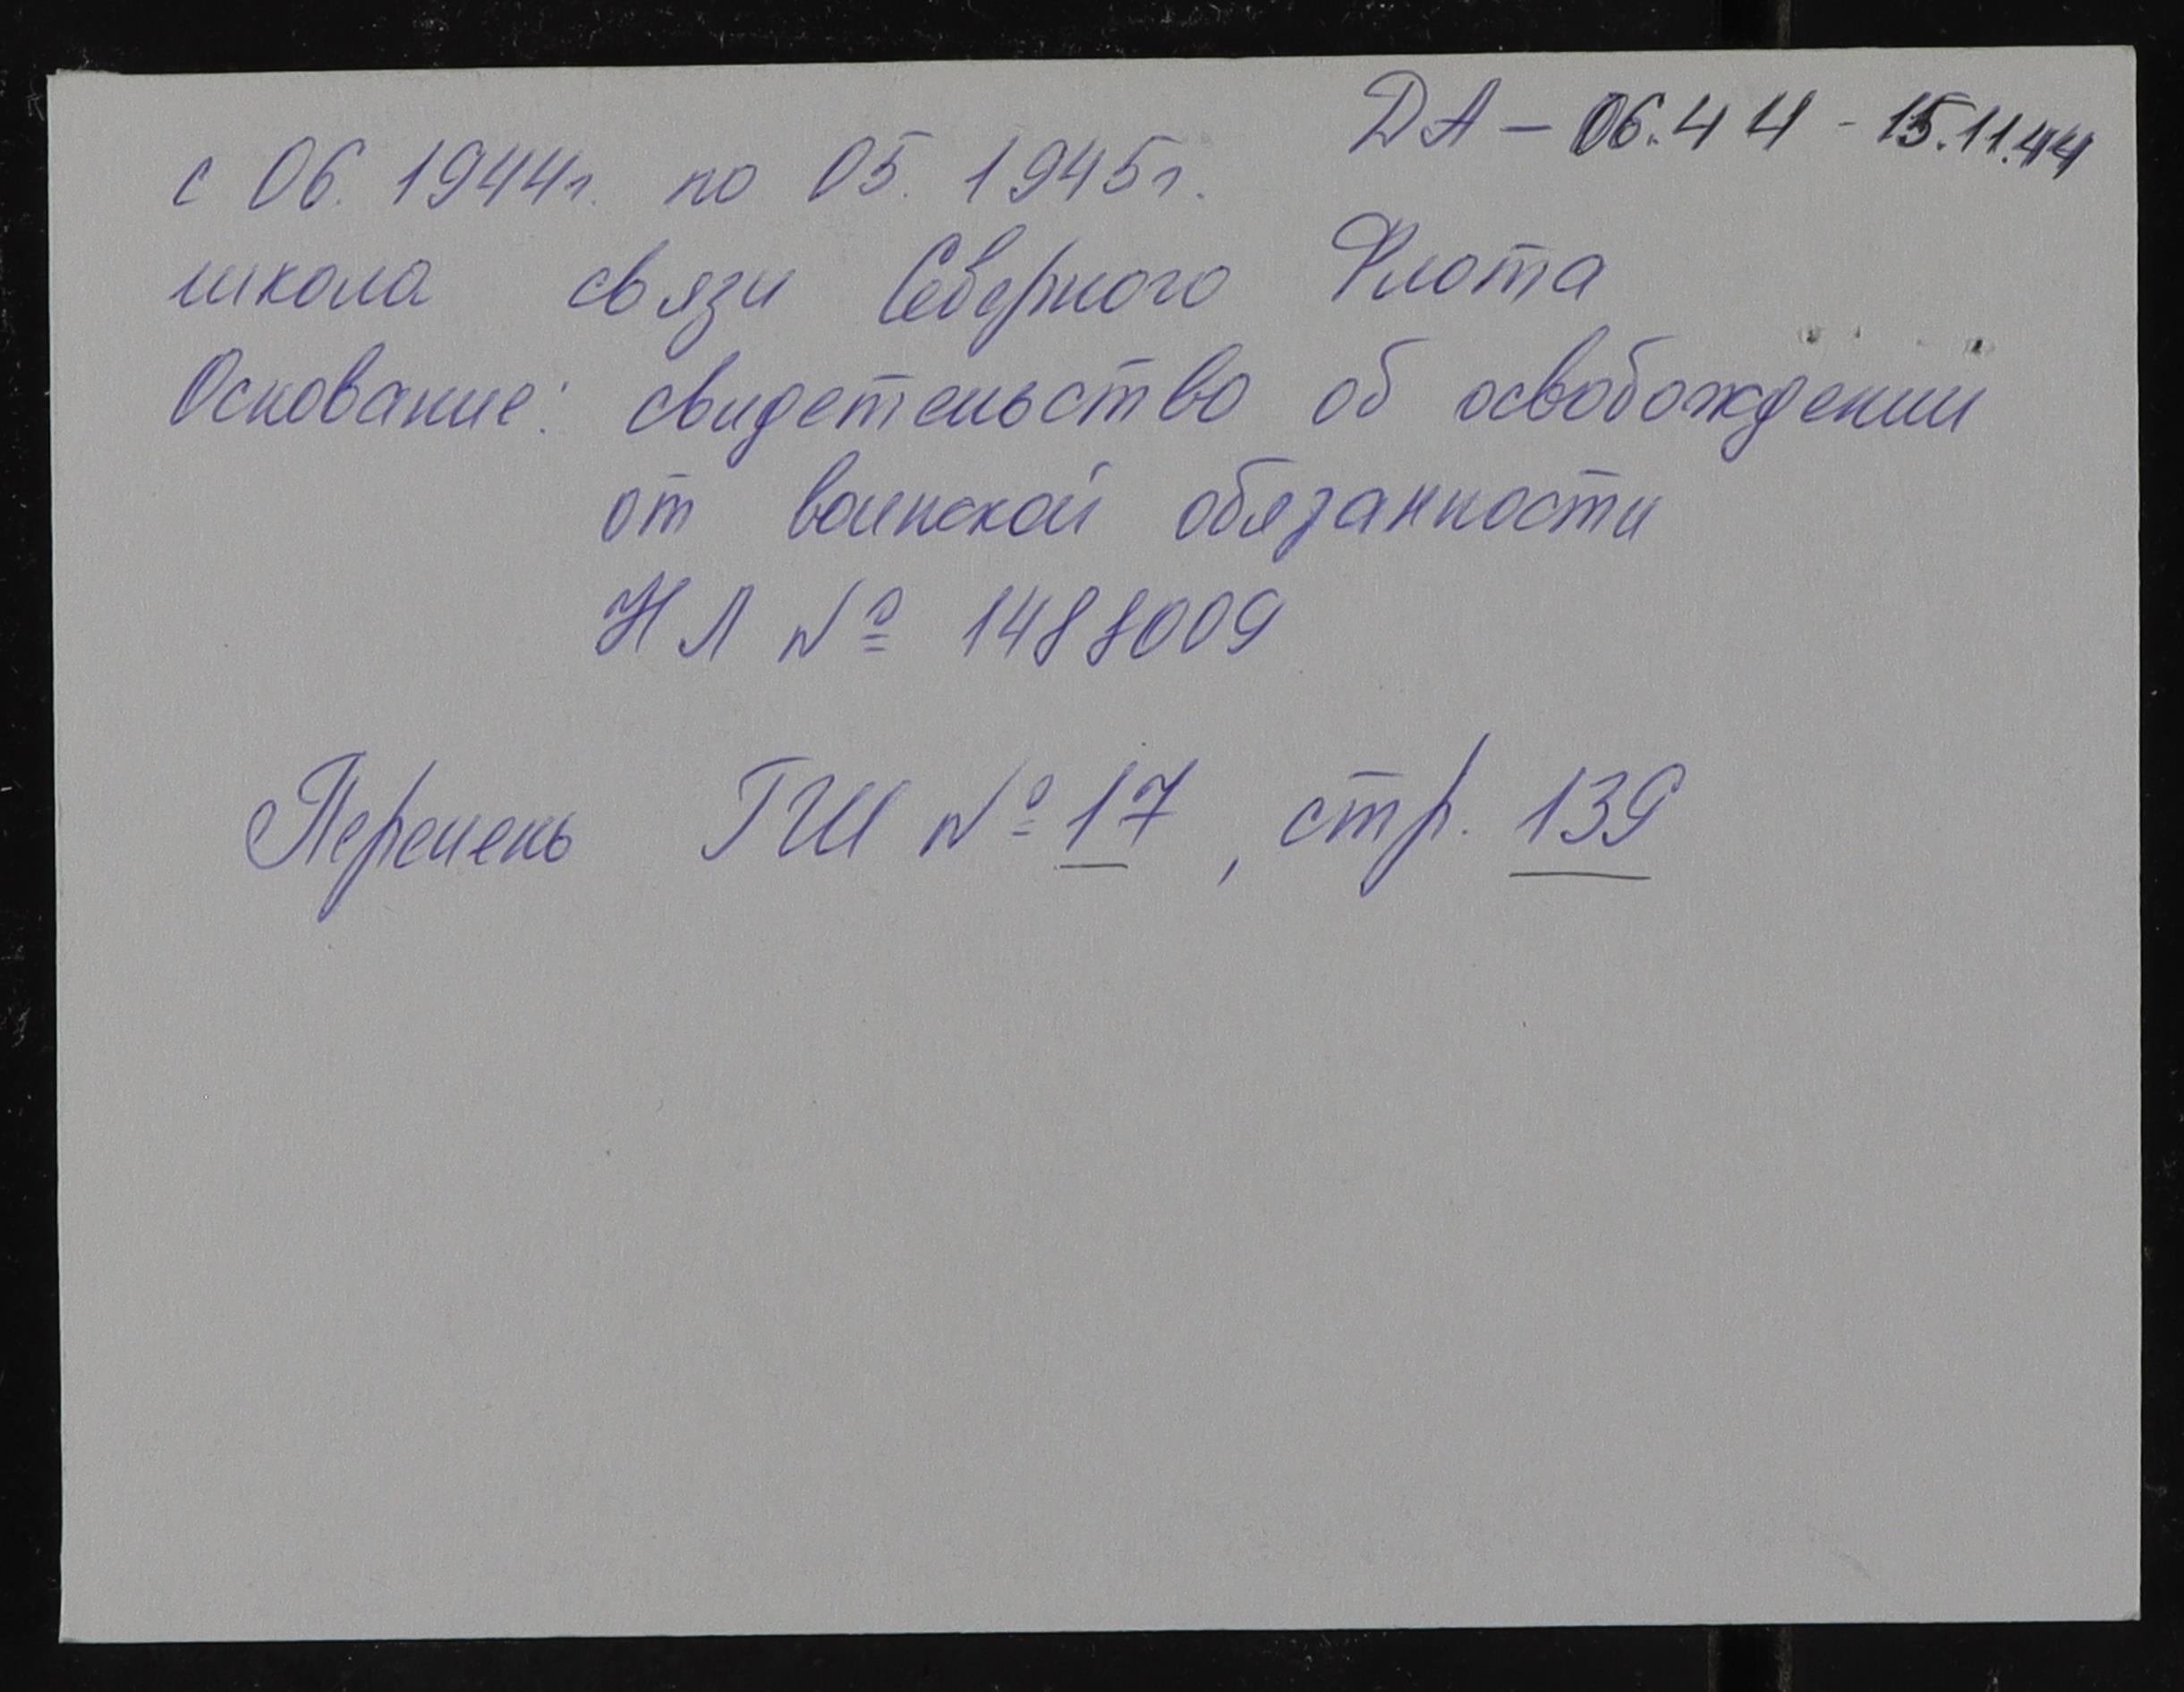 ДА – 06.44 - 15.11.44
с 06. 1944г. по 05. 1945г.
школа связи Северного Флота
Основание: свидетельство об освобождении
от воинской обязанности
НЛ № 1488009
Перечень ГШ № 17, стр. 139